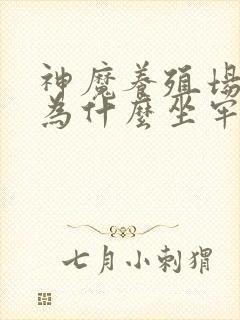 神魔養殖場
為什麼坐牢
七月小刺猬